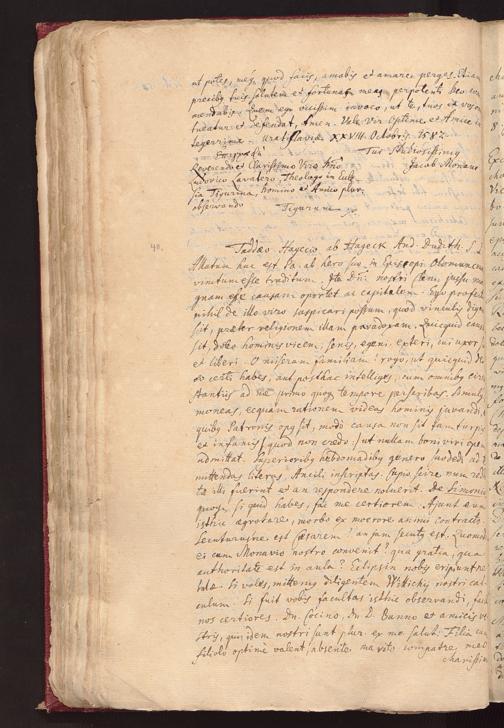 ut potes, meq, quod facis, amabis et amare perges. Etiam
precibq tuis salutem et fortunas meas perpetuò Deo com
mendabis. Quem ego vicissim invoco, ut te, tuos et
tueatur et defendat, Amen. Vale Vir Optime et Amice in
tegerrime. Uratislaviæ XXVIII. Octobris. 1582
Tuæ Studiosissimus
Reverendo et Clarissimo Viro Dño Jacob. Monavi
Ludovico Lavatero, Theologo in Eccle
sia Tigurina, homino et Amico plur.
observando
Tigurum
40. Taddæo Hagecio ab Hageck And. Dudith. S. D
Allatum huc est ab hero suo, in Episcopi Olomucens
vinctum esse traditum. nostri justu
gnam esse causam oportet ac capitalem. Ego profecto
nihil de illo viro suspicari possum, quod vinculis dign
sit, præter religionem illam paradoxam. Quicquid caus
sit, doleo hominis vicem, senis, egeni, exteri, cui uxor
et liberi. O miseram familiam! rogo, ut quicquid de
certi habes, aut posthac intelliges, cum omnibq circ
stantiis ad me primo quoq tempore perscribas. Simul
moneas, ecquam rationem videas hominis juvandi,
quibq Patronis opq sit, modò causa non sit tam turpis
et infamis (quod non credo) ut nullam boni viri ope
admittat. Superioribq hebdomadibq genero suo dedi ad
mittendas literas, inscriptas. Cupio scire num redd
tæ illi fuerint et an respondere noluerit. De Simonio
quoq, si quid habes, fac me certiorem. Ajunt eum
isthic ægrotare, morbo ex moerore animi contracto.
Secuturusne est Cæsarem? an jam secutq est. Quomodo
ei cum Monavio nostro convenit? qua gratia, qua
authoritate est in aula? Eclipsin nobis eripuere
bila. Si voles, mittemus diligentem Witichii nostri cal
culum. Si fuit vobis facultas isthic observandi, fac
nos certiores. Dn. Cocino, Dn. D. Banno et amicis ve
stris, qui idem nostri sunt plur. ex me salut. Filia cum
filiolo optimè valent, absente marito compatre meo
charissim